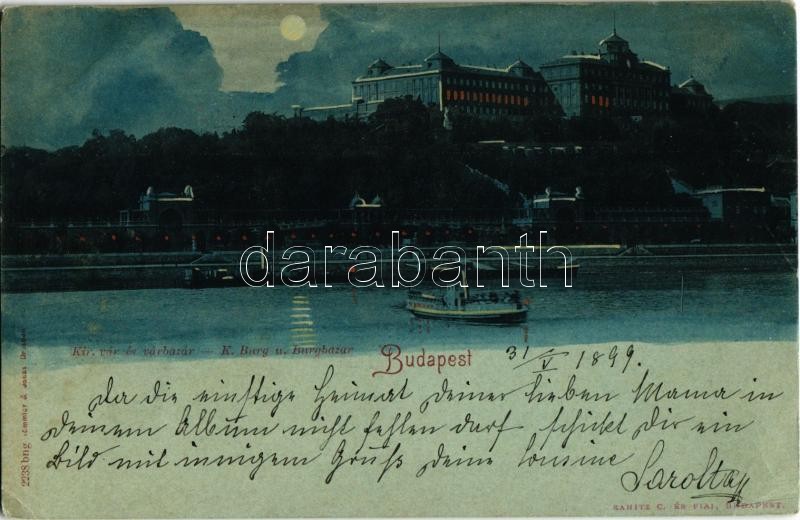 darabanth
Kir. vár és várbazár — K. Burg u. Burgbazar
Budapest
31/V 1899.
Da die einstige Heimat Deiner lieben Mama in
deinem Album nicht fehlen darf schickt Dir ein
Bild mit innigem Gruß deine Cousine
Sarolta
GANITZ C. ÉS FIAI, BUDAPEST.
2238 bng